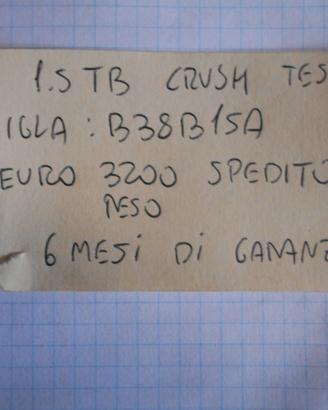 1.5 TB CRUSH TES
IGLA : B38B15A
EURO 3200 SPEDITO
RESO
6 MESI DI GARANZ